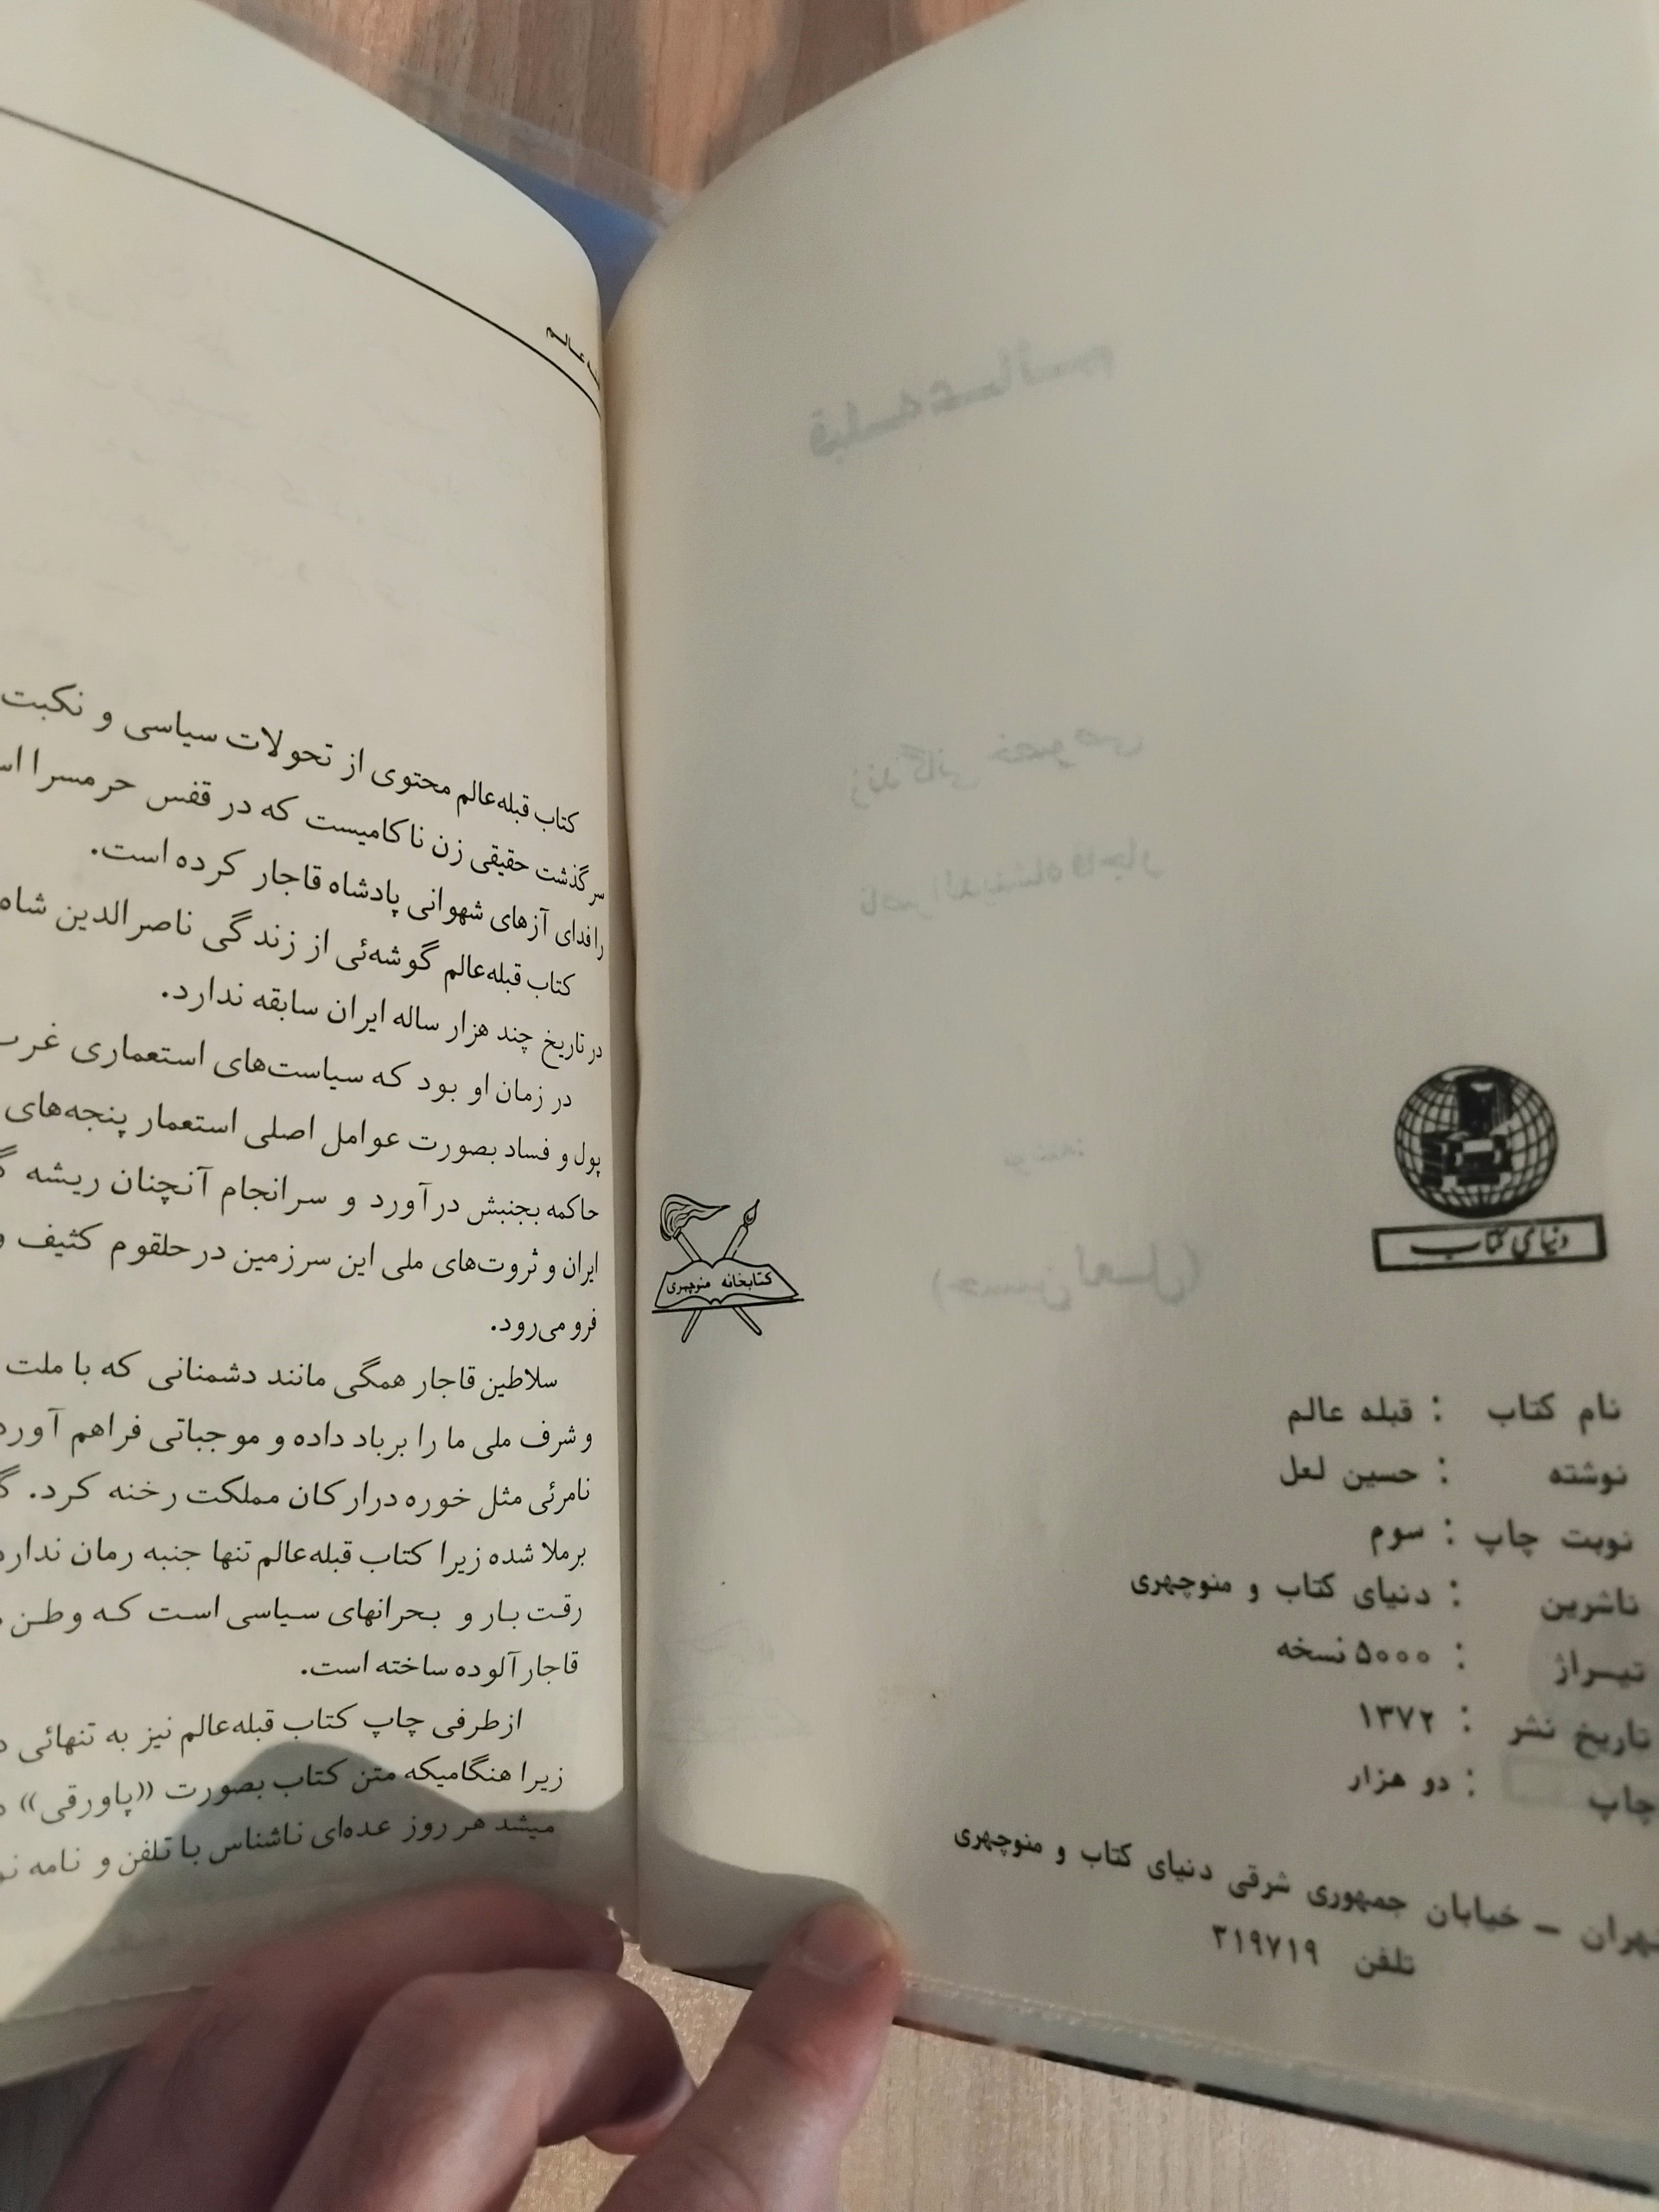 دنیای کتاب
کتابخانه منوچهری
نام کتاب : قبله عالم
نوشته : حسین لعل
نوبت چاپ : سوم
ناشرین : دنیای کتاب و منوچهری
تیـراژ : ۵۰۰۰ نسخه
تاریخ نشر : ۱۳۷۲
چاپ : دو هزار
تهران – خیابان جمهوری شرقی دنیای کتاب و منوچهری
تلفن ۳۱۹۷۱۹
قبله عالم
زندگانی خصوصی
ناصرالدینشاه قاجار
نوشته:
(حسین لعل)
عـالـم
کتاب قبله‌عالم محتوی از تحولات سیاسی و نکبت
سرگذشت حقیقی زن ناکامیست که در قفس حرمسرا
را فدای آزهای شهوانی پادشاه قاجار کرده است.
کتاب قبله‌عالم گوشه‌ئی از زندگی ناصرالدین شاه
در تاریخ چند هزار ساله ایران سابقه ندارد.
در زمان او بود که سیاست‌های استعماری
پول و فساد بصورت عوامل اصلی استعمار پنجه‌های
حاکمه بجنبش درآورد و سرانجام آنچنان ریشه
ایران و ثروت‌های ملی این سرزمین در حلقوم کثیف و
فرو می‌رود.
سلاطین قاجار همگی مانند دشمنانی که با ملت
و شرف ملی ما را برباد داده و موجباتی فراهم
نامرئی مثل خوره درارکان مملکت رخنه کرد.
برملا شده زیرا کتاب قبله‌عالم تنها جنبه رمان
رقت بـار و بـحرانهای سـیاسی اسـت کـه وطـن
قاجار آلوده ساخته است.
ازطرفی چاپ کتاب قبله‌عالم نیز به تنهائی
زیرا هنگامیکه متن کتاب بصورت «پاورقی»
میشد هر روز عده‌ای ناشناس با تلفن و نامه